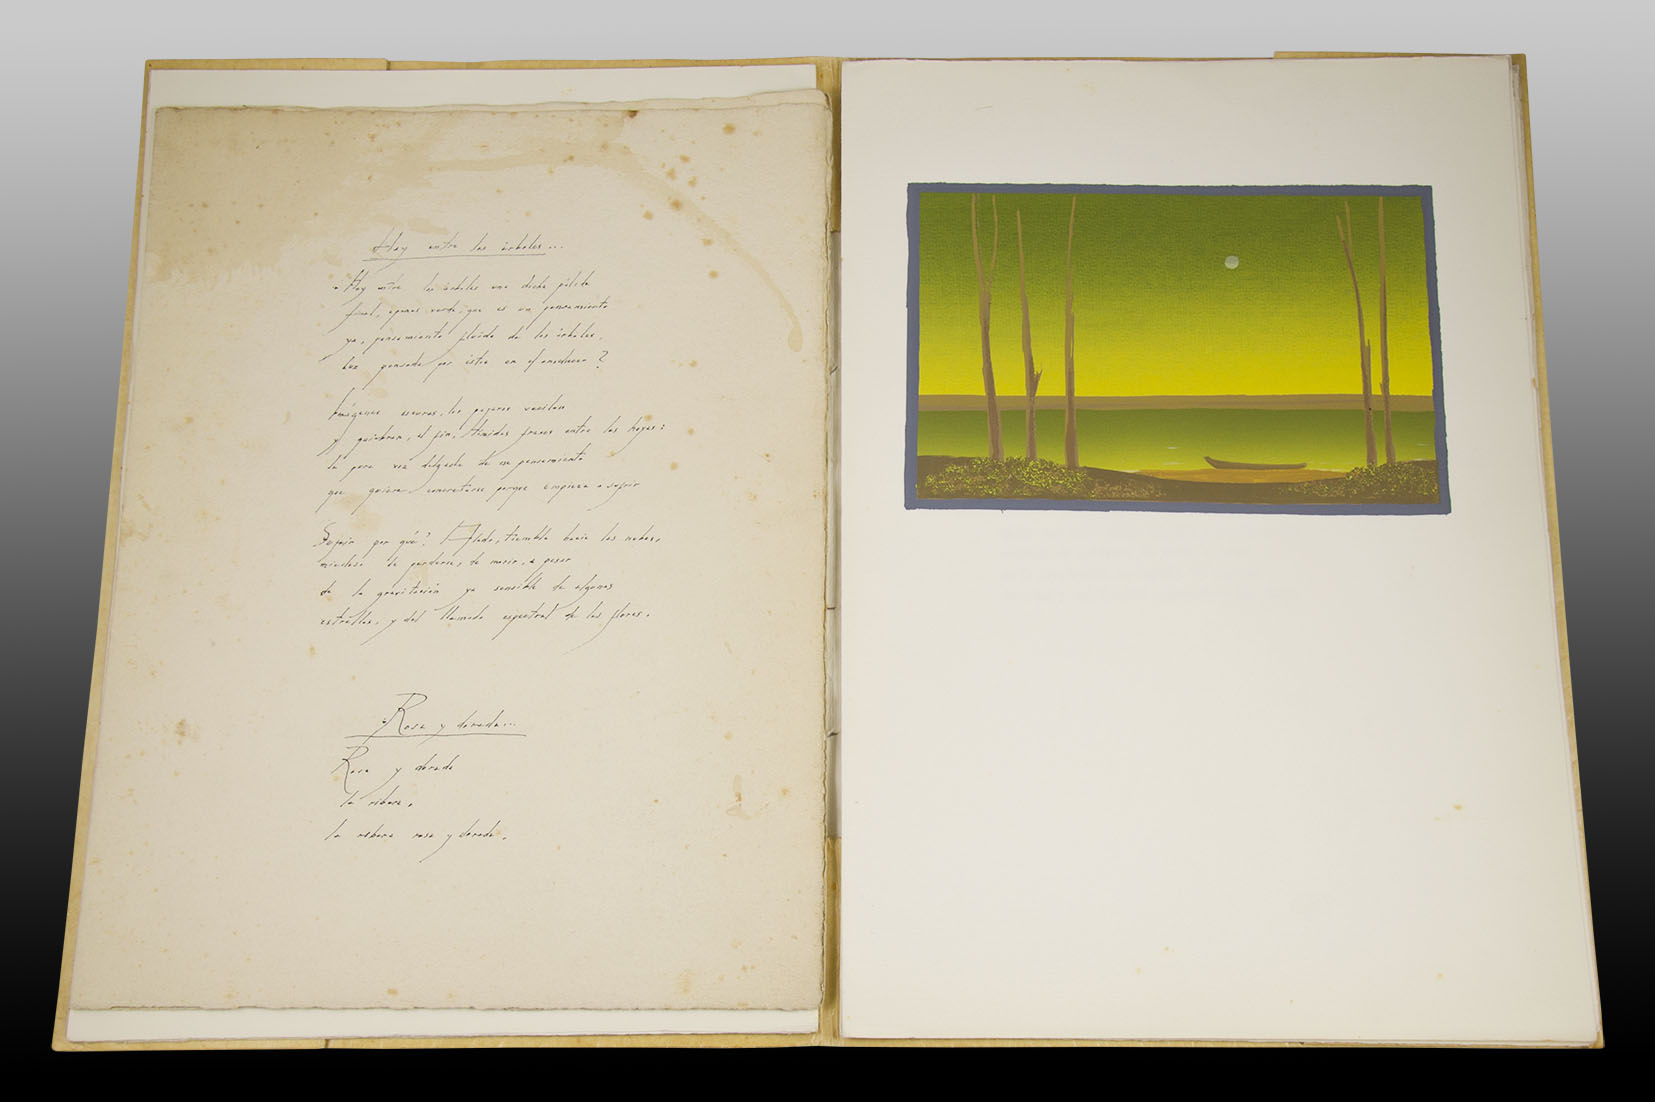 Hay entre los árboles...
Hay entre los árboles una dicha pálida
final, apenas verde, que es un pensamiento
ya, pensamiento fluido de los árboles,
luz pensada por éstos en el anochecer?
Imágenes oscuras, los pájaros vacilan
y quiebran, al fin, tímidas frases entre las hojas:
la pura voz delgada de ese pensamiento
que quiere concretarse porque empieza a sufrir
Sufrir por qué? Alado, tiembla hacia las nubes,
miedoso de perderse, de morir, a pesar
de la gravitación ya sensible de algunas
estrellas, y del llamado espectral de las flores.
Rosa y dorada...
Rosa y dorada
la ribera.
la ribera rosa y dorada.